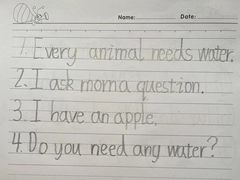 Name: Date:
1. Every animal needs water.
2. I ask mom a question.
3. I have an apple.
4. Do you need any water?